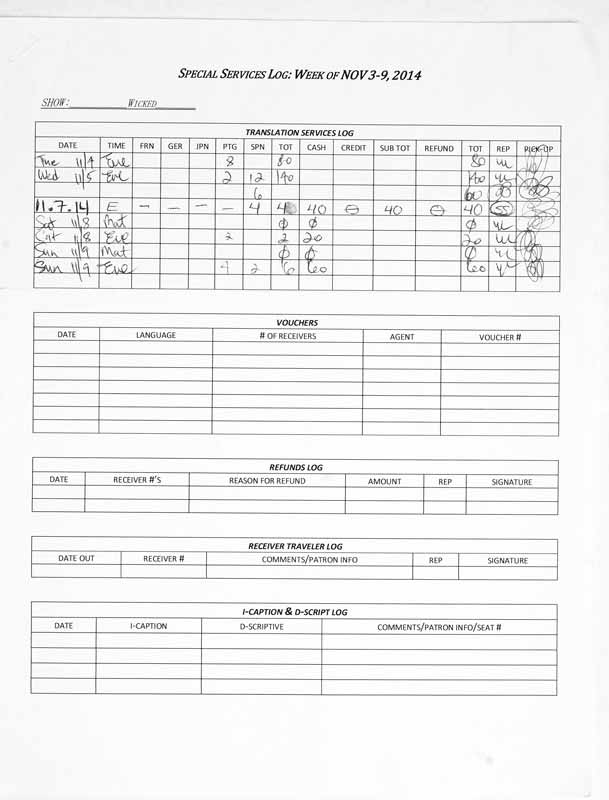 SPECIAL SERVICES LOG: WEEK OF NOV 3-9, 2014
SHOW: WICKED
TRANSLATION SERVICES LOG
DATE TIME FRN GER JPN PTG SPN TOT CASH CREDIT SUB TOT REFUND TOT REP PICK-UP
Tue 11/4 Eve 8 80 80
Wed 11/5 Eve 2 12 140 140
6 60
11.7.14 E – – – – 4 40 40 ⊖ 40 ⊖ 40 SS
Sat 11/8 Mat Ø Ø Ø
Sat 11/8 Eve 2 2 20 20
Sun 11/9 Mat Ø Ø Ø
Sun 11/9 Eve 4 2 6 60 60
VOUCHERS
DATE LANGUAGE # OF RECEIVERS AGENT VOUCHER #
REFUNDS LOG
DATE RECEIVER #'S REASON FOR REFUND AMOUNT REP SIGNATURE
RECEIVER TRAVELER LOG
DATE OUT RECEIVER # COMMENTS/PATRON INFO REP SIGNATURE
I-CAPTION & D-SCRIPT LOG
DATE I-CAPTION D-SCRIPTIVE COMMENTS/PATRON INFO/SEAT #